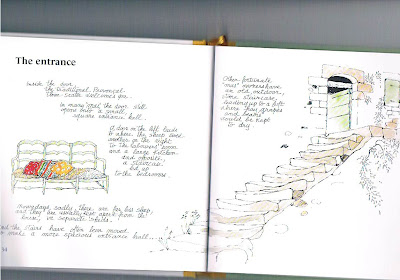 The entrance
Inside the door,
the traditional Provençal
farm scale welcomes you.
In many "mas" the door still
opens onto a small,
square entrance hall.
A door on the left leads
to where the sheep lived
another on the right
to the labourers' room
and a large kitchen
and opposite,
a staircase
led up
to the bedrooms.
Nowadays, sadly, there are far less sheep,
and they are usually kept apart from the
house, in separate sheds.
and the stairs have often been moved
to make a more spacious entrance hall...
34
Other fortunate
"mas" owners have
an old outdoor,
stone staircase,
leading up to a loft
where hay, grapes
and beans
would be kept
to dry